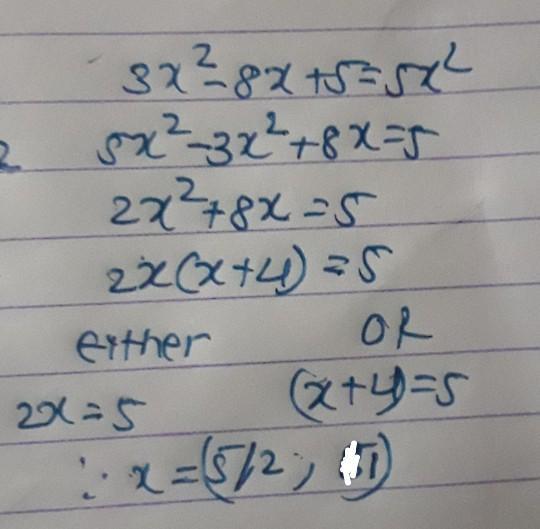 3x²-8x+5=5x²
2 5x²-3x²+8x=5
2x²+8x=5
2x(x+4)=5
either OR
2x=5 (x+4)=5
∴ x=(5/2, 1)